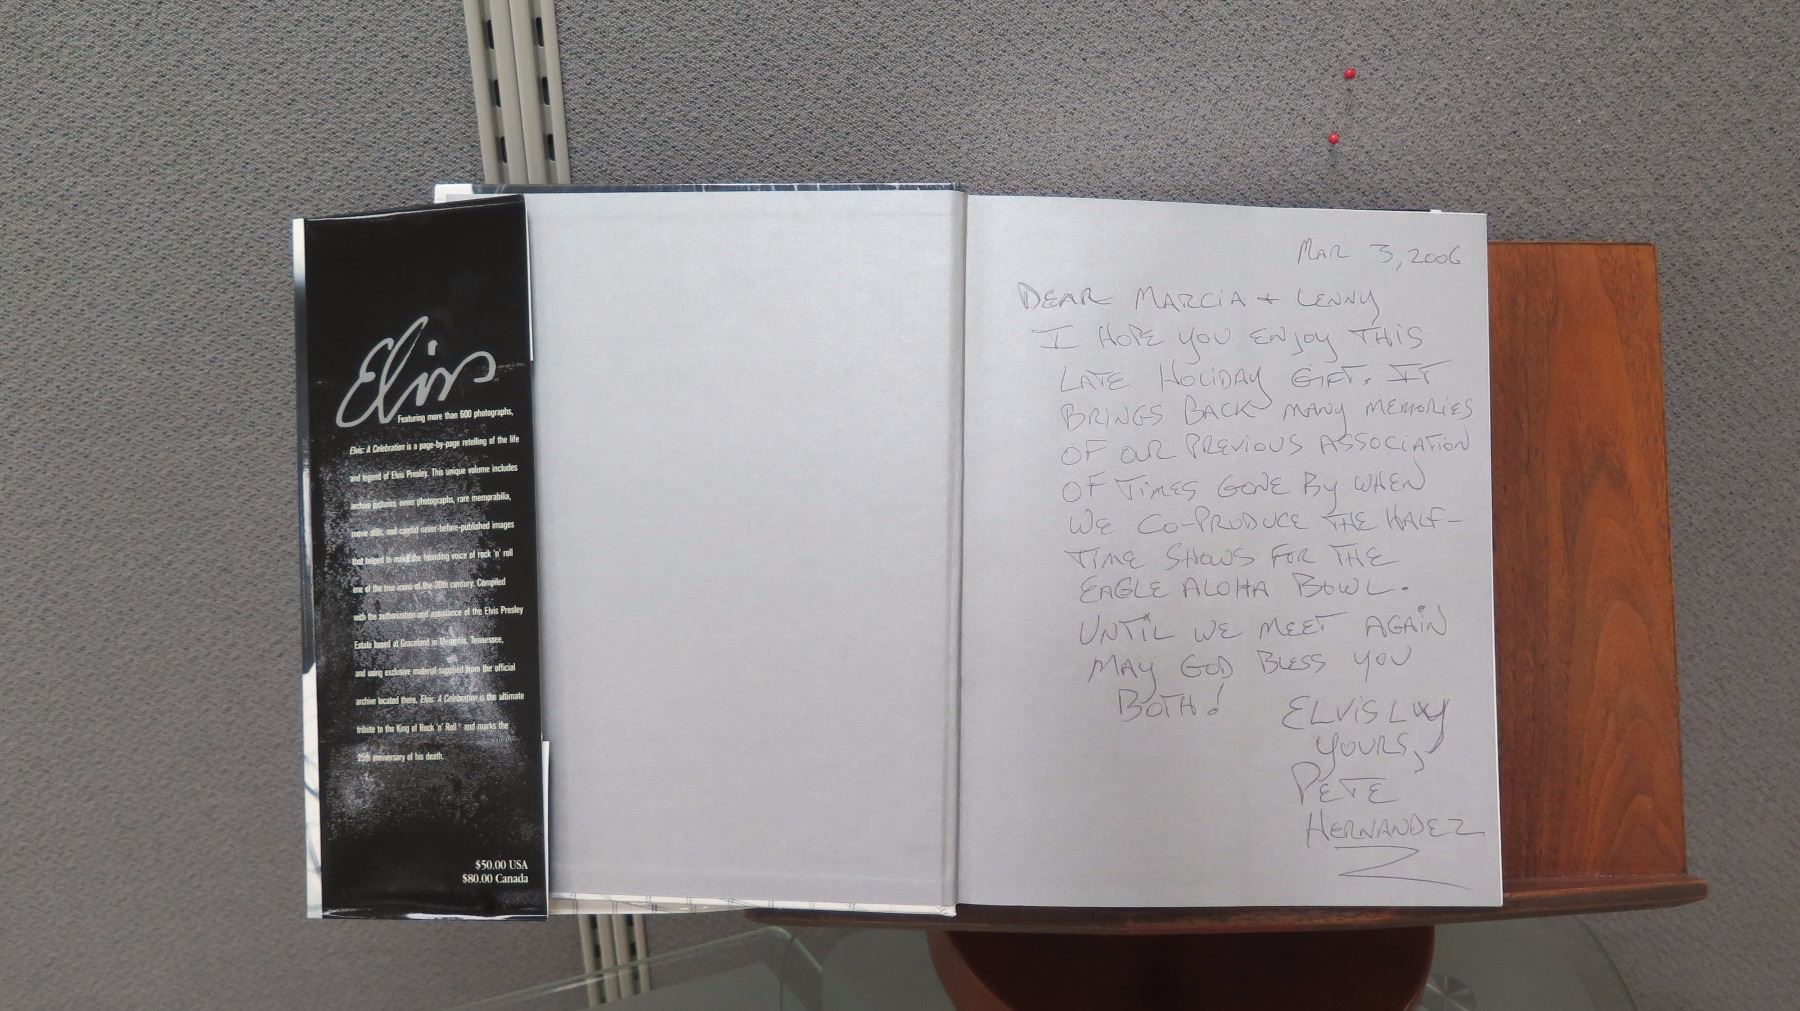 Elvis
Featuring more than 600 photographs,
Elvis: A Celebration is a page-by-page retelling of the life
and legend of Elvis Presley. This unique volume includes
archive pictures, news photographs, rare memorabilia,
movie stills, and candid never-before-published images
that helped to make the founding voice of rock 'n' roll
one of the true icons of the 20th century. Compiled
with the authorization and assistance of the Elvis Presley
Estate based at Graceland in Memphis, Tennessee,
and using exclusive material supplied from the official
archive located there, Elvis: A Celebration is the ultimate
tribute to the King of Rock 'n' Roll® and marks the
25th anniversary of his death.
$50.00 USA
$80.00 Canada
MAR 3, 2006
DEAR MARCIA + LENNY
I HOPE YOU ENJOY THIS
LATE HOLIDAY GIFT. IT
BRINGS BACK MANY MEMORIES
OF OUR PREVIOUS ASSOCIATION
OF TIMES GONE BY WHEN
WE CO-PRODUCE THE HALF-
TIME SHOWS FOR THE
EAGLE ALOHA BOWL.
UNTIL WE MEET AGAIN
MAY GOD BLESS YOU
BOTH!
ELVISLY
YOURS,
PETE
HERNANDEZ